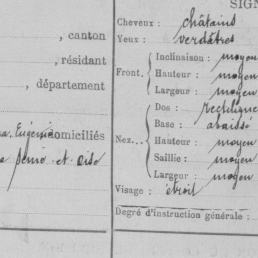 SIGN
, canton
, résidant
, département
Eugénie domiciliés
Seine-et-Oise
Cheveux : châtains
Yeux : verdâtres
Front. Inclinaison : moyen
Hauteur : moyen
Largeur : moyen
Nez... Dos : rectiligne
Base : abaissé
Hauteur : moyen
Saillie : moyen
Largeur : moyen
Visage : étroit
Degré d'instruction générale :